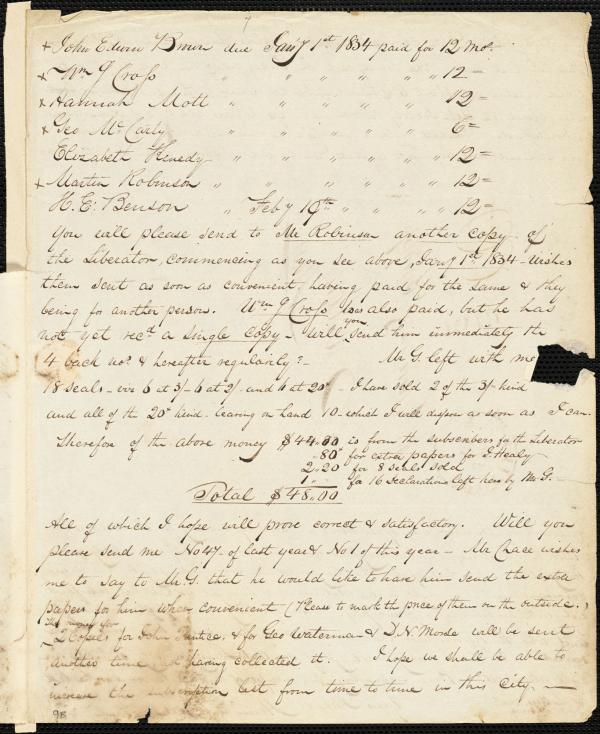 x John Edwin Brown due Jany 1st 1834 paid for 12 mos.
x Wm J Cross " " " " " " 12 =
x Hannah Mott " " " " " " 12 =
x Geo McCarty " " " " " " 6 =
Elizabeth Kenedy " " " " " " 12 =
x Martin Robinson " " " " " " 12 =
H. E. Benson " Feby 19th " " " " 12 =
You will please send to Mr Robinson another copy of
the Liberator, commencing as you see above, Jany 1st 1834 - wishes
them sent as soon as convenient, having paid for the same & they
being for another person. Wm J Cross has also paid, but he has
not yet recd a single copy - will you send him immediately the
4 back nos. & hereafter regularly? - Mr G. left with me
18 seals - viz 6 at 3/- 6 at 2/- and 6 at 20c - I have sold 2 of the 3/- kind
and all of the 20c kind - leaving on hand 10 - which I will dispose as soon as I can.
Therefore of the above money $44.00 is from the subscribers for the Liberator
.80 for extra papers for J Healy
2.20 for 8 seals sold
1. for 16 Declarations left here by Mr G.
Total $48.00
All of which I hope will prove correct & satisfactory. Will you
please send me No 47 of last year & No 1 of this year - Mr Chace wishes
me to say to Mr. G. that he would like to have him send the extra
papers for him when convenient (Please to mark the price of them on the outside.)
the money for
2 Copies for John Prentice, & for Geo Waterman & D. N. Morse will be sent
another time not having collected it. I hope we shall be able to
increase the subscription list from time to time in this City. -
9B